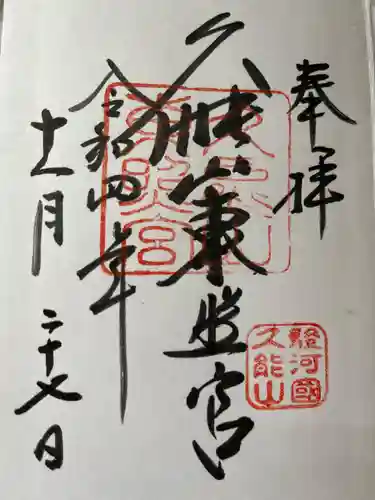 奉拝
久能山東照宮
令和四年
十一月二十七日
久能山東照宮
駿河國
久能山